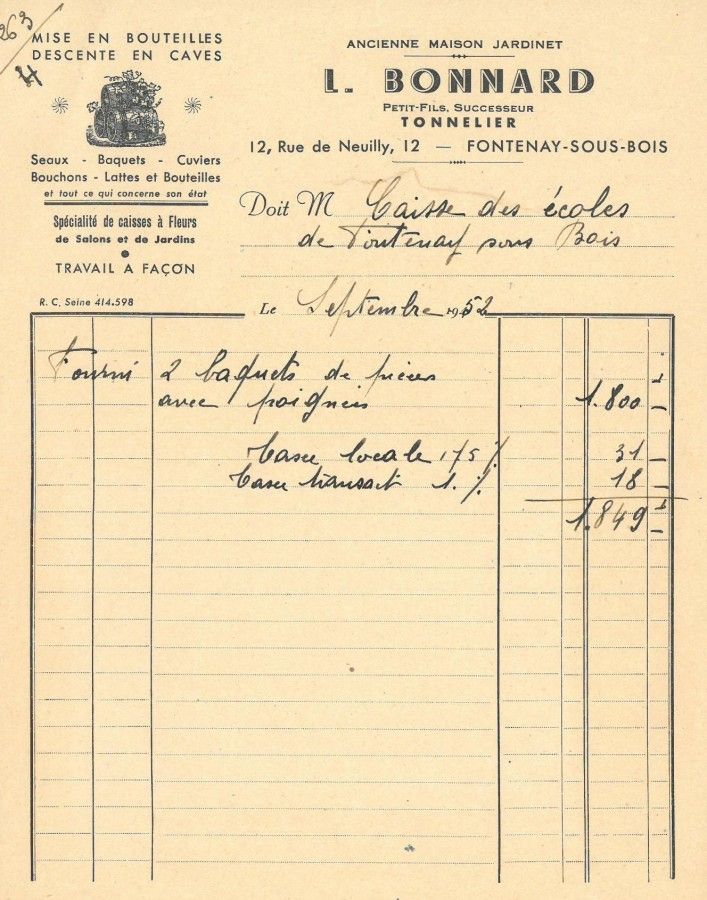 263
MISE EN BOUTEILLES
DESCENTE EN CAVES
Seaux - Baquets - Cuviers
Bouchons - Lattes et Bouteilles
et tout ce qui concerne son état
Spécialité de caisses à Fleurs
de Salons et de Jardins
TRAVAIL A FAÇON
R. C. Seine 414.598
ANCIENNE MAISON JARDINET
L. BONNARD
PETIT-FILS, SUCCESSEUR
TONNELIER
12, Rue de Neuilly, 12 — FONTENAY-SOUS-BOIS
Doit M Caisse des écoles
de Fontenay sous Bois
Le Septembre 1952
Fourni 2 baquets de pièces
avec poignées 1.800 —
Taxe locale 1,75 % 31 —
Taxe transact 1. % 18 —
1.849 —